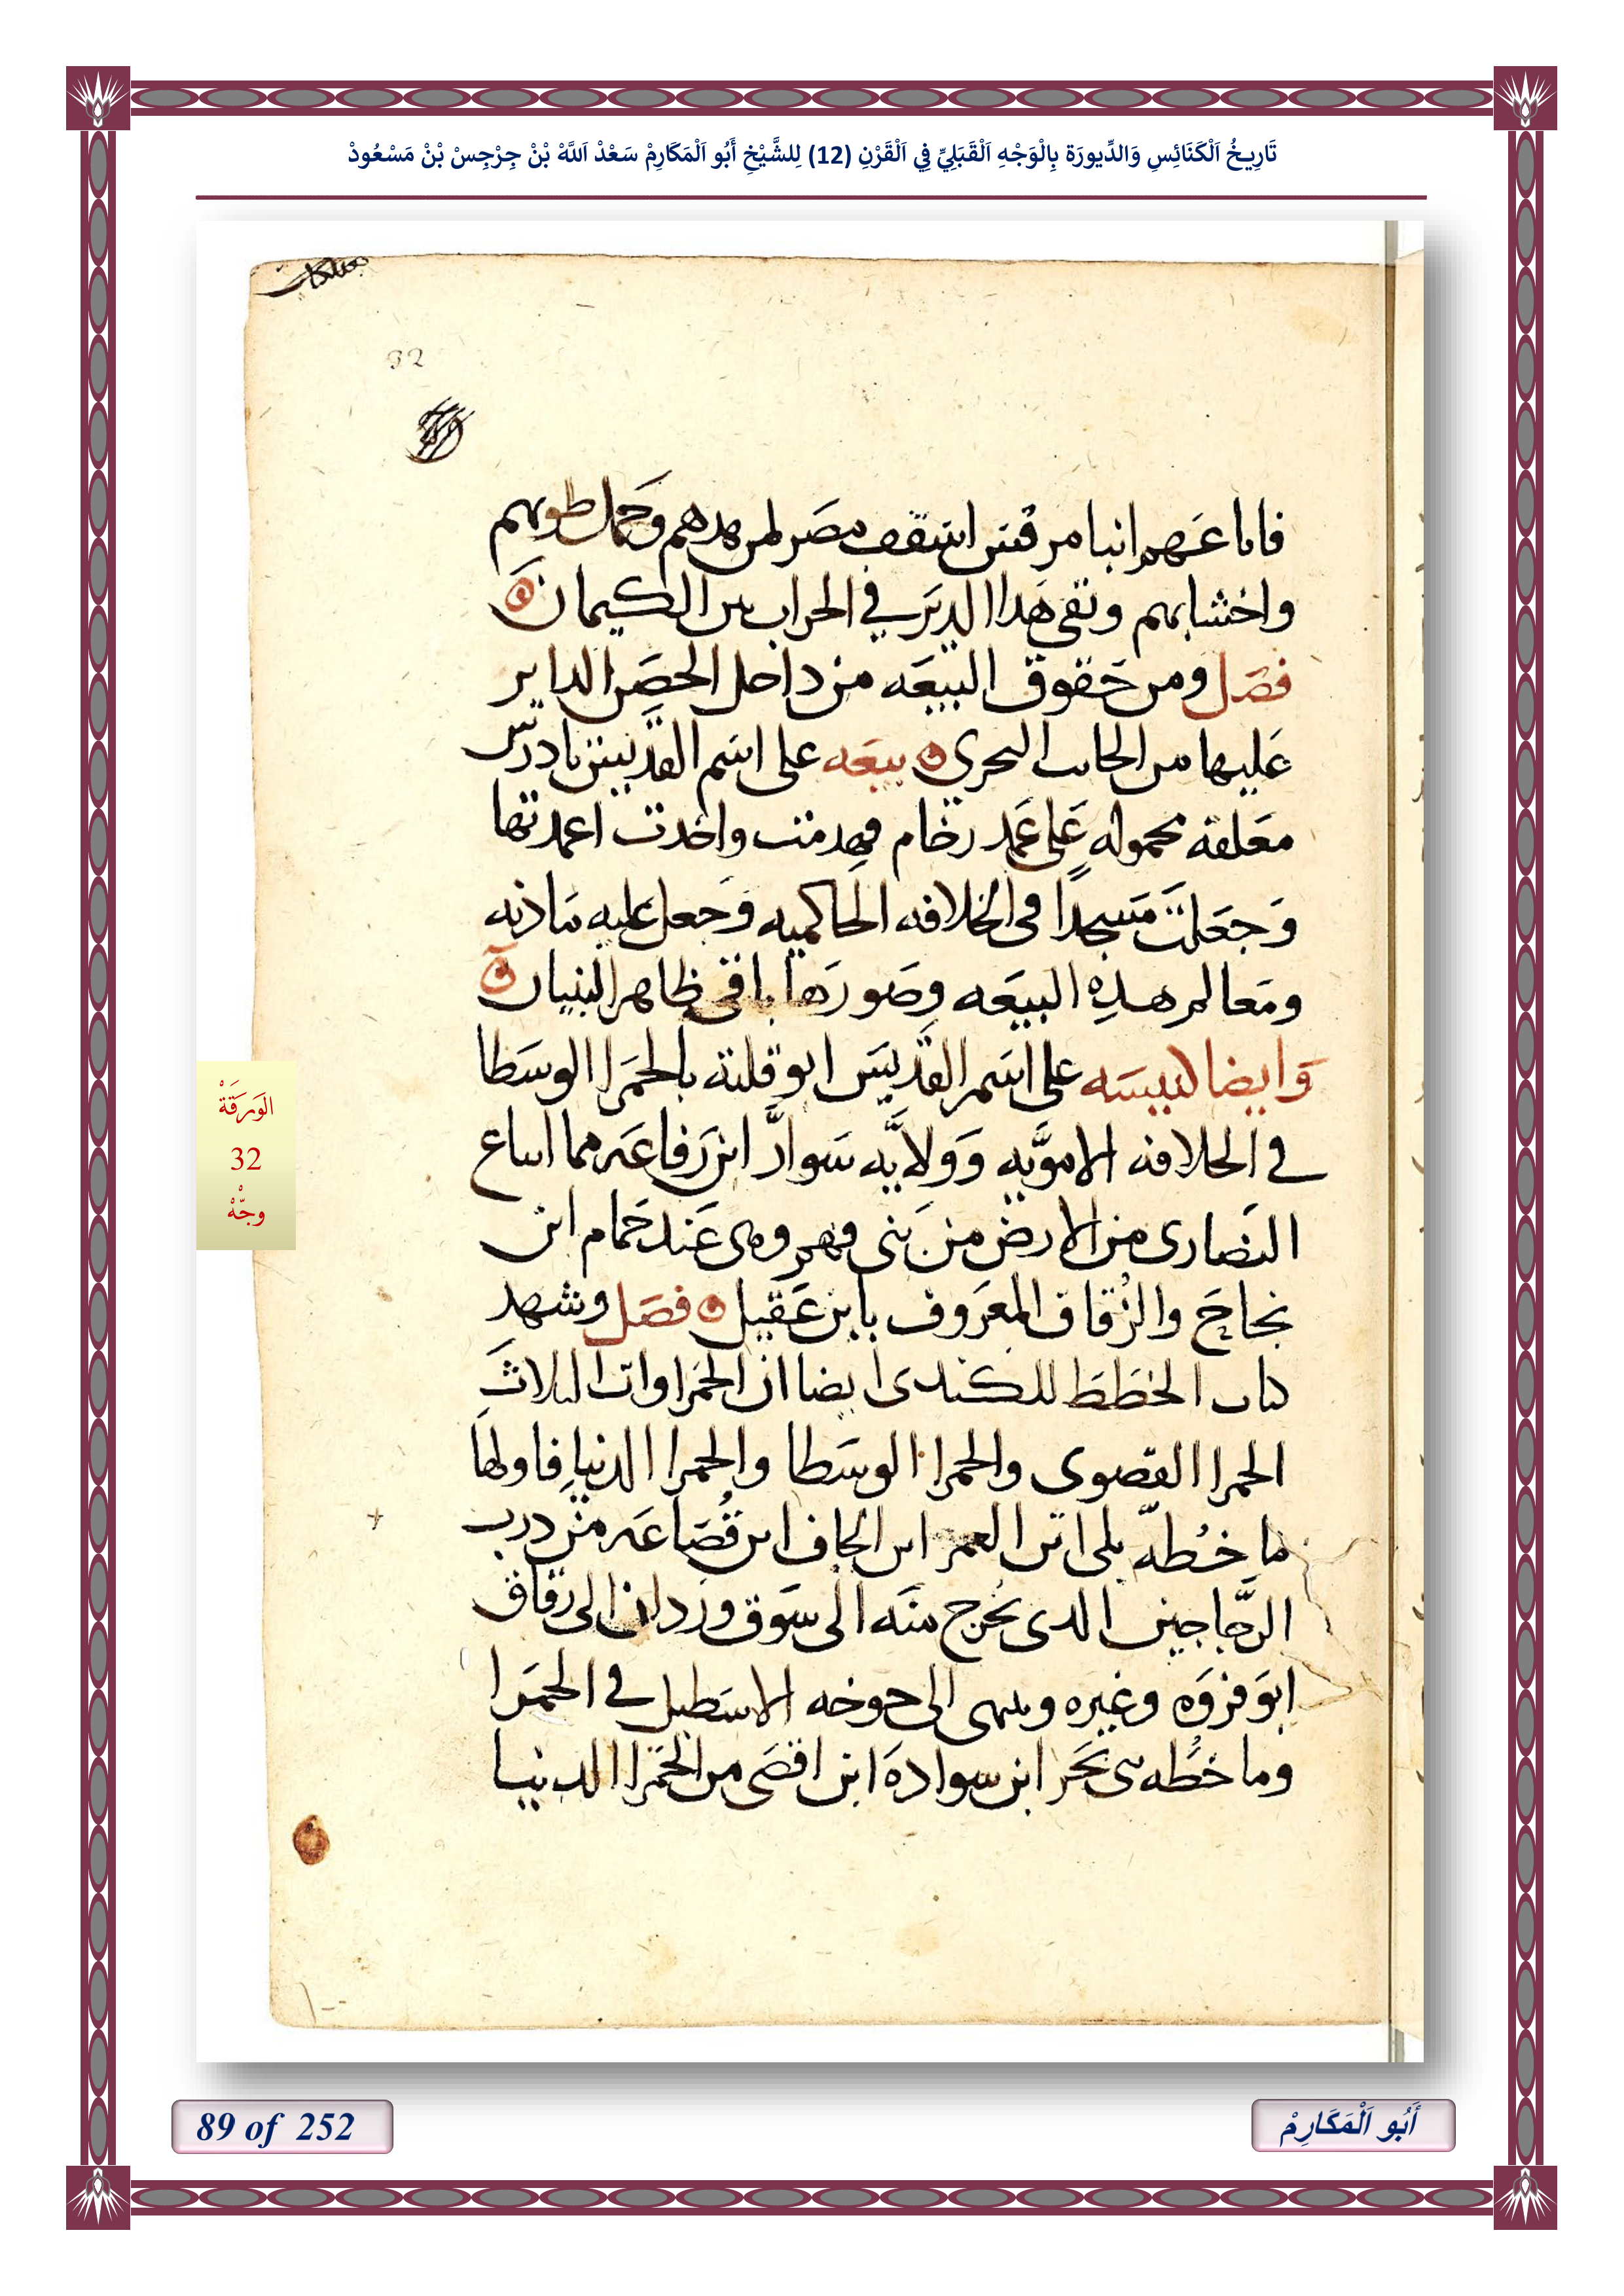 تَارِيخُ اَلْكَنَائِسِ وَالدِّيورَة بِالْوَجْهِ اَلْقَبَلِيِّ فِي اَلْقَرْنِ (12) لِلشَّيْخِ أَبُو اَلْمَكَارِمْ سَعْدْ اَللَّهْ بْنْ جِرْجِسْ بْنْ مَسْعُودْ
32
فاباعهم انبا مرقس اسقف مصر لمن هدهم وحمل طوبهم
واخشابهم وبقى هدا الدير في الخراب بين الكيمان
فصل ومن حقوق البيعه من داخل الحصن الداير
عليها من الجانب البحرى بيعه على اسم القديس تادرس
معلقه محموله على عمد رخام فهدمت واخدت اعمدتها
وجعلت مسجدا فى الخلافه الحاكميه وجعل عليه مادنه
ومعالم هذه البيعه وصورها باقى ظاهر البنيان
وايضا كنيسه على اسم القديس ابو قلته بالحمرا الوسطا
في الخلافه الامويه وولايه سوار ابن رفاعه مما ابتاع
النصارى من الارض من بنى فهر وهى عند حمام ابن
نجاح والزقاق المعروف بابن عقيل فصل وشهد
كتاب الخطط للكندى ايضا ان الحمراوات الثلاث
الحمرا القصوى والحمرا الوسطا والحمرا الدنيا فاولها
ما خطه بلى ابن العمر ابن الحاف ابن قضاعه من درب
الزجاجين الدى يخرج منه الى سوق وردان الى زقاق
ابو فروه وغيره وينتهى الى خوخه الاسطبل في الحمرا
وما خطه بنى بحر ابن سواده ابن اقصى من الحمرا الدنيا
الوَرَقَةْ
32
وجْهْ
89 of 252
أَبُو اَلْمَكَارِمْ